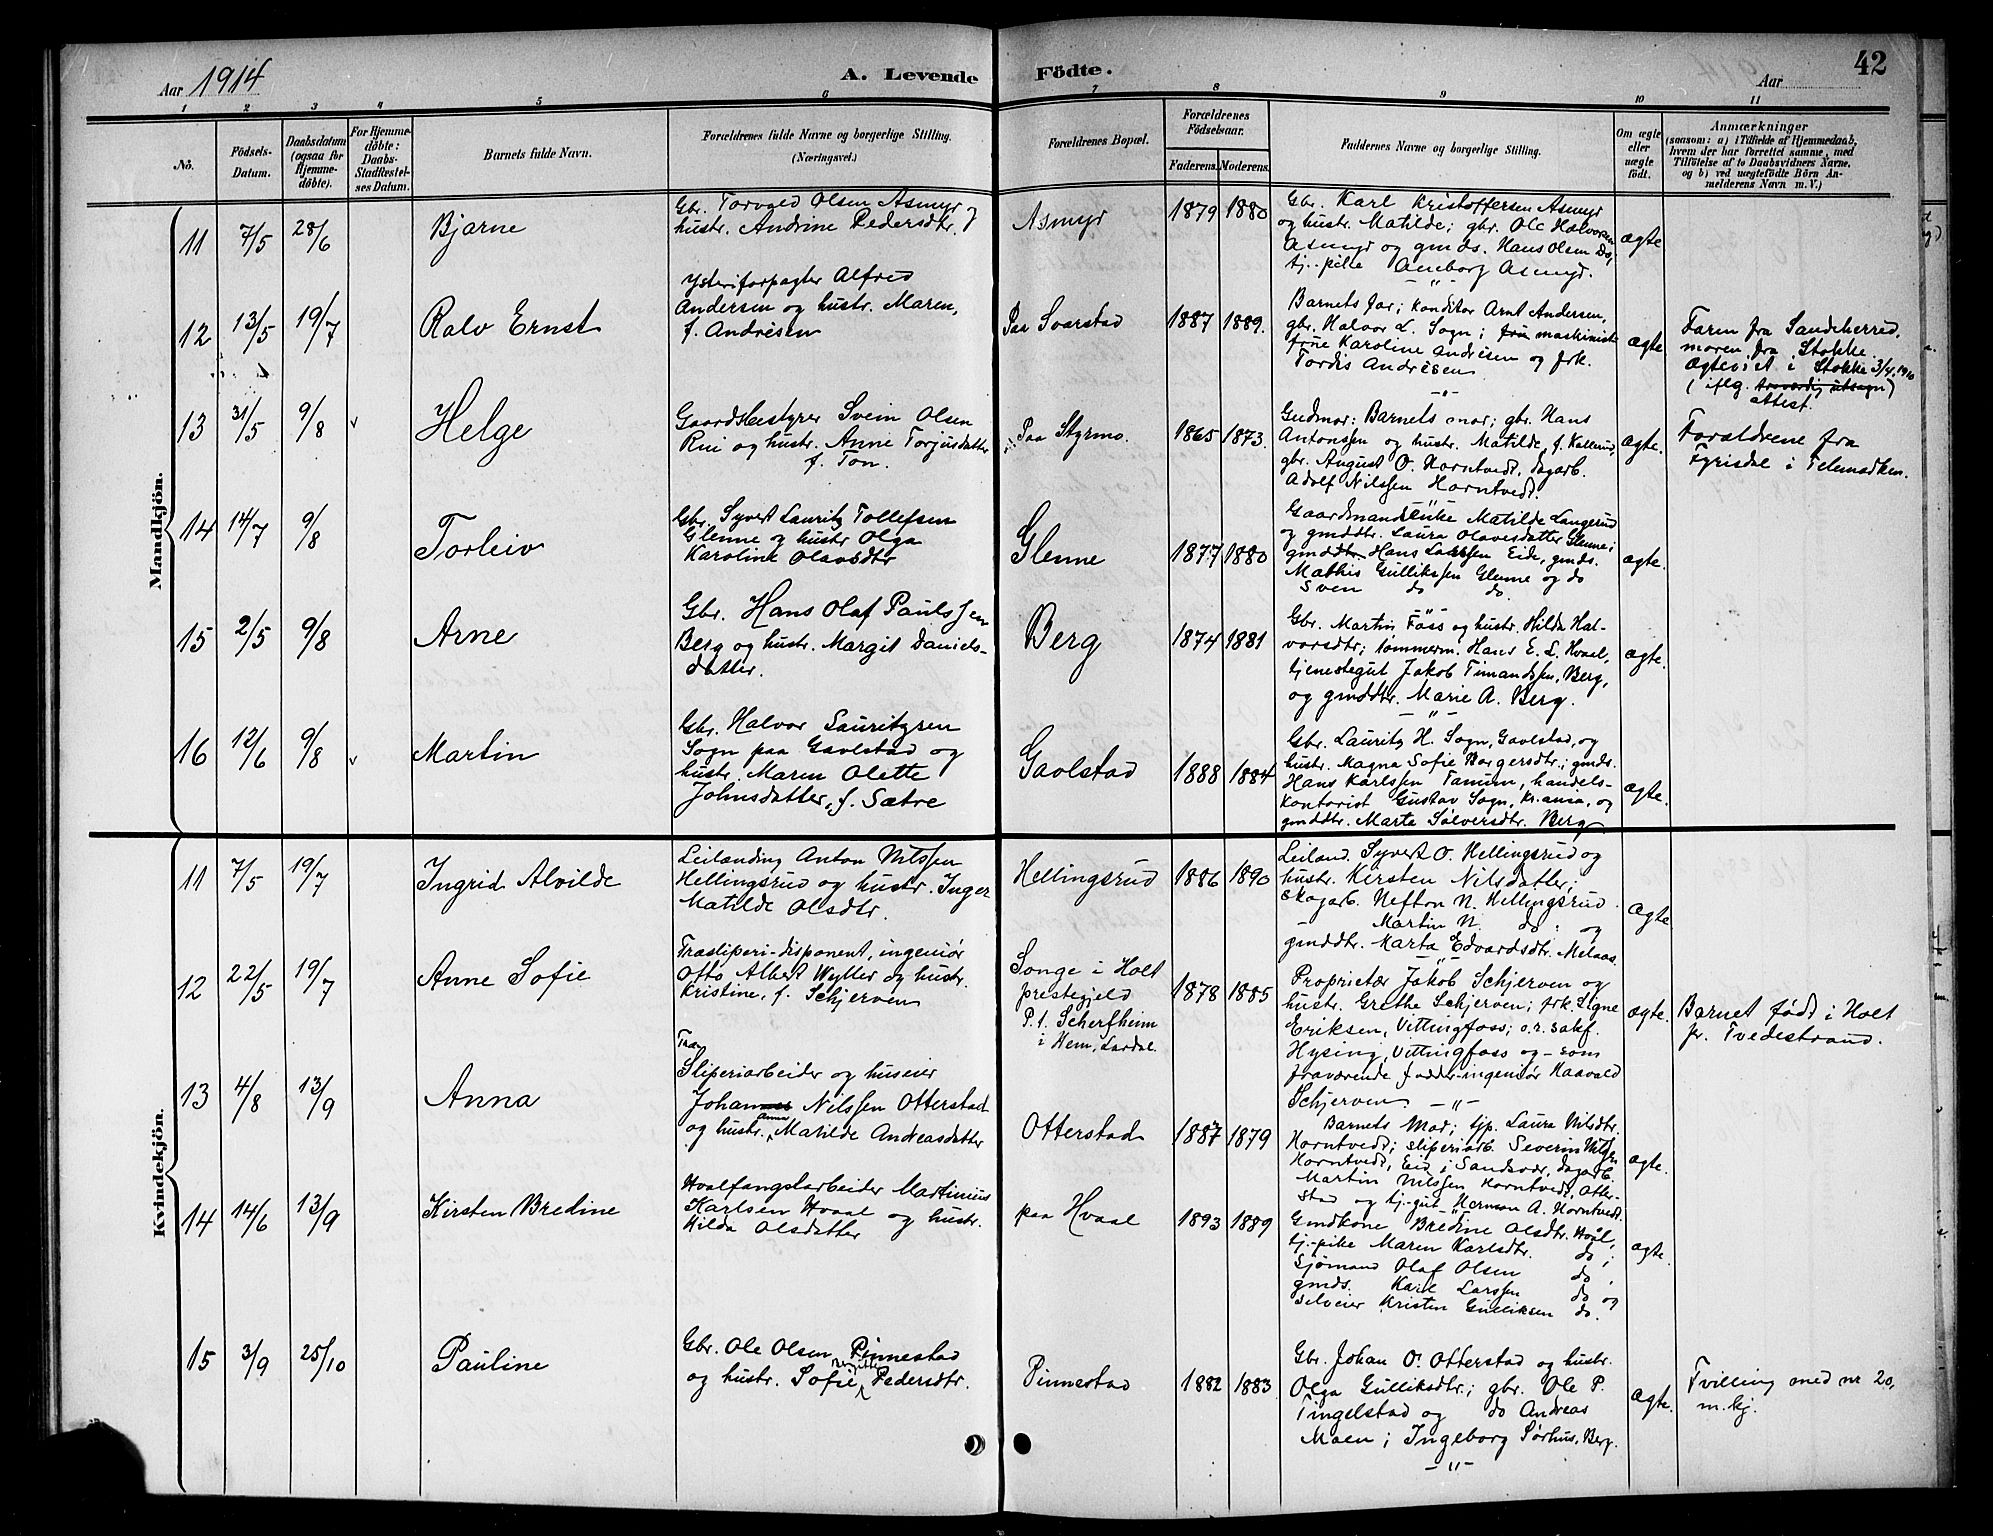 Aar 1914
A. Levende
Födte.
Aar
42
1 2 3 4 5 6 7 8 9 10 11
Nö.
Födsels-
Datum.
Daabsdatum
(ogsaa for
Hjemme-
döbte).
For Hjemme-
döbte:
Daabs-
Stadfæstel-
ses Datum.
Barnets fulde Navn.
Forældrenes fulde Navne og borgerlige Stilling.
(Næringsvei.)
Forældrenes Bopæl.
Forældrenes
Födselsaar.
Faderens.
Moderens.
Faddernes Navne og borgerlige Stilling.
Om ægte
eller
uægte
födt.
Anmærkninger
(saasom: a) i Tilfælde af Hjemmedaab,
hvem der har forrettet samme, med
Tilföielse af to Daabsvidners Navne,
og b) ved uægtefödte Börn An-
melderens Navn m. V.)
Mandkjön.
11 7/5 28/6 Bjarne
Gbr. Torvald Olsen Asmyr og
hustr. Andrine Pedersdtr.
Asmyr 1879 1880
Gbr. Karl Kristoffersen Asmyr
og hustr. Matilde; gbr. Ole Halvorsen
Asmyr og gmds. Hans Olsen Do,
tj.-pike Amborg Asmyr.
ægte
12 13/5 19/7 Ralv Ernst
Ysteriforpagter Alfred
Andersen og hustr. Maren,
f. Andrèsen
Paa Svarstad 1887 1889.
Barnets far; Konditor Arnt Andersen,
gbr. Halvor L. Sogn; frue maskinist
frue Karoline Andrèsen og frk.
Tordis Andrèsen
ægte
Faren fra Sandeherred,
moren fra Stokke.
Ægteviet i Stokke 3/4, 1910
(iflg. troværdig utsagn)
attest.
13 31/5 9/8 v Helge
Gaardsbestyrer Svein Olsen
Rui og hustr. Anne Torjusdatter
f. Ton.
Paa Styrmo. 1865 1873.
Gudmor: Barnets mor; gbr. Hans
Antonssen og hustr. Matilde, f. Kallerud,
gbr. August O. Horntvedt, dagarb.
Adolf Nilssen Horntvedt.
ægte.
Forældrene fra
Fyrisdal i Telemarken.
14 14/7 9/8 Torleiv
Gbr. Syvert Lauritz Tollefsen
Glenne og hustr Olga
Karoline Olavsdtr
Glenne 1877 1880
Gaardmandsenke Matilde Langerud
og gmddtr. Laura Olavesdatter Glenne;
gmddtr. Hans Larssen Eide, gmds.
Mathis Gullikssen Glenne og do
Sven do do.
ægte.
15 2/5 9/8 Arne
Gbr. Hans Olaf Paulssen
Berg og hustr. Margit Daniels-
datter.
Berg 1874 1881
Gbr. Martin Foss og hustr. Hilda Hal-
vorsdtr; tømmerm. Hans E. L. Hvaal,
tjenestegut Jakob Timandssen, Berg,
og gmddtr. Marie A. Berg.
ægte.
16 12/6 9/8 v Martin
Gbr. Halvor Lauritzsen
Sogn paa Gavlstad og
hustr. Maren Olette
Johnsdatter, f. Sætre
Gavlstad 1888 1884
Gbr. Lauritz H. Sogn, Gavlstad, og
hustr. Magna Sofie Borgersdtr; gmds.
Hans Karlssen Tanum, handels-
kontorist Gustav Sogn, Kr.ania, og
gmddtr. Marta Sølversdtr. Berg
ægte.
Kvindekjön.
11 7/5 19/7 Ingrid Alvilde
Leilænding Anton Nilssen
Hellingsrud og hustr. Inger
Matilde Olsdtr.
Hellingsrud 1886 1890
Leilænd. Syvert O. Hellingsrud og
hustr. Kirsten Nilsdatter;
Skogarb. Nefton N. Hellingsrud.
Martin N. do. og
gmddtr. Karta Edvardsdtr. Melaas.
ægte
12 22/5 19/7 Anne Sofie
Træsliperi-disponent, ingeniør
Otto Albert Wyller og hustr.
Kristine, f. Schjerven
Songe i Holt
prestegjeld
P. t. Scherfheim
i Hem, Lardal.
1878 1885
Proprietær Jakob Schjerven og
hustr. Grethe Schjerven; frk. Signe
Eriksen, Vittingfoss; o.r. sakf.
Hysing, Vittingfoss og - som
fraværende fadder - ingeniør Haavald
Schjerven.
ægte.
Barnet født i Holt
pr. Tvedestrand.
13 4/8 13/9 Anna
Træ
Sliperiarbeider og huseier
Johannes Nilssen Otterstad
og hustr. Anna Matilde Andreasdatter
Otterstad 1887 1879
Barnets Mor; tjp. Laura Nilsdtr.
Horntvedt; sliperiarb. Severin Nilssen
Horntvedt, Eid i Sandsvær, dagarb.
Martin Nilssen Horntvedt, Otter-
stad og tj.-gut Herman A. Horntvedt.
ægte.
14 14/6 13/9 Kirsten Bredine
Hvalfangstarbeider Martinius
Karlsen Hvaal og hustr.
Hilda Olsdatter
paa Hvaal 1893 1889
Gmdkone Bredine Olsdtr. Hvål,
tj.-pike Maren Karlsdtr. do;
Sjømand Olaf Olsen do,
gmds. Karl Larssen do og
selveier Kristen Gulliksen do.
ægte.
15 3/9 25/10 Pauline
Gbr. Ole Olsen Pinnestad
og hustr. Sofie Birgitte Pedersdtr.
Pinnestad 1882 1883
Gbr. Johan O. Otterstad og hustr.
Olga Gulliksdtr.; gbr. Ole P.
Tingelstad og do Andreas
Moen; Ingeborg Sørhus, Berg.
ægte.
Tvilling med nr 20,
m.kj.